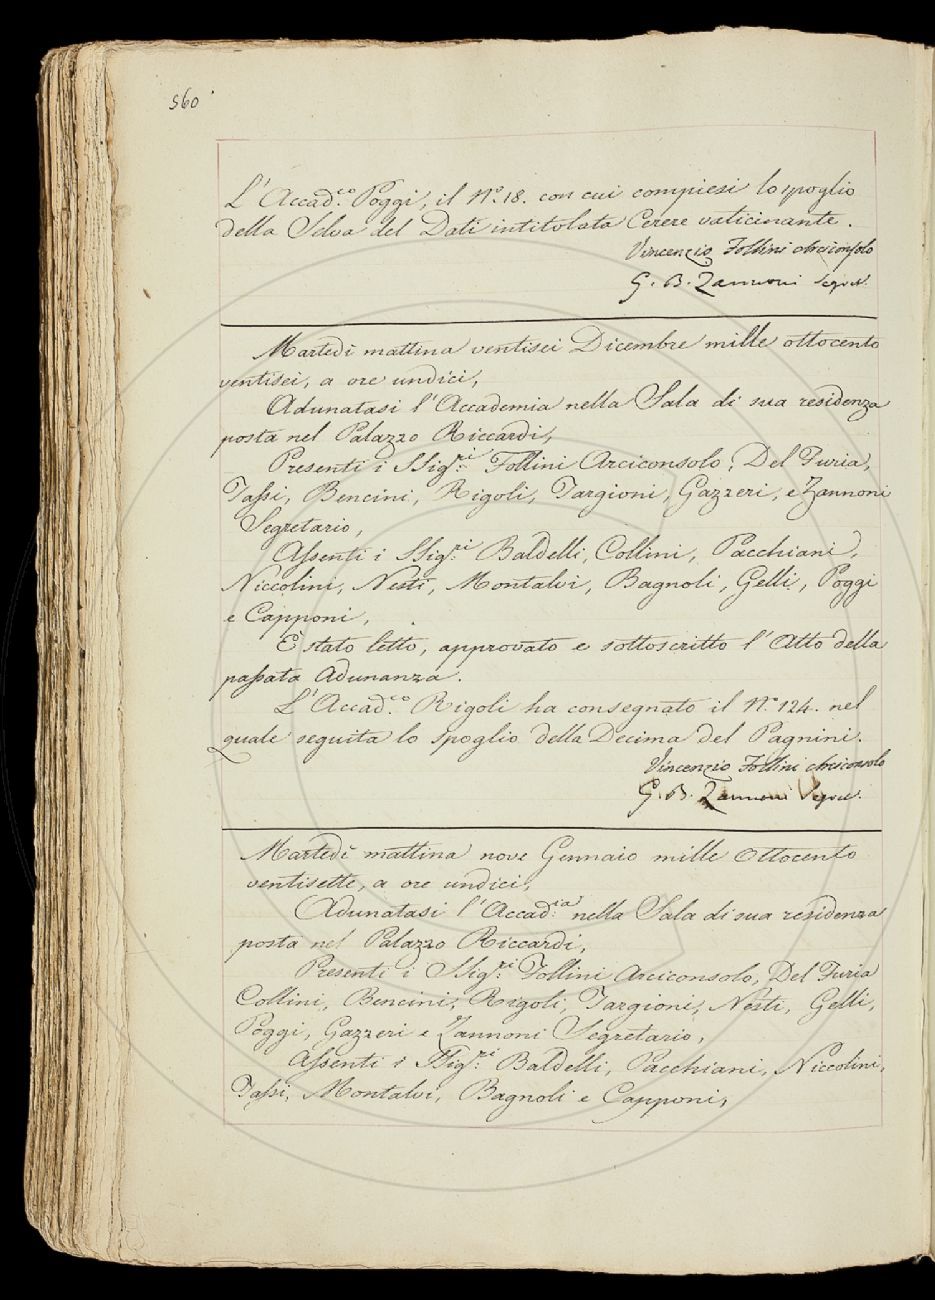 560
L'Accad.co Poggi, il N.o 18. con cui compiesi lo spoglio
della Selva del Dati intitolata Cerere vaticinante.
Vincenzio Follini Arciconsolo
G. B. Zannoni Segret.
Martedì mattina ventisei Dicembre mille ottocento
ventisei, a ore undici,
Adunatasi l'Accademia nella Sala di sua residenza
posta nel Palazzo Riccardi,
Presenti i SSig.ri Follini Arciconsolo, Del Furia,
Tassi, Bencini, Rigoli, Targioni, Gazzeri, e Zannoni
Segretario,
Assenti i SSig.ri Baldelli, Collini, Pacchiani,
Niccolini, Nesti, Montalvi, Bagnoli, Gelli, Poggi
e Capponi,
È stato letto, approvato e sottoscritto l'Atto della
passata Adunanza.
L'Accad.co Rigoli ha consegnato il N.o 124. nel
quale seguita lo Spoglio della Decima del Pagnini.
Vincenzio Follini Arciconsolo
G. B. Zannoni Segret.
Martedì mattina nove Gennaio mille Ottocento
ventisette, a ore undici,
Adunatasi l'Accad.ia nella Sala di sua residenza
posta nel Palazzo Riccardi,
Presenti i SSig.ri Follini Arciconsolo, Del Furia
Collini, Bencini, Rigoli, Targioni, Nesti, Gelli,
Poggi, Gazzeri e Zannoni Segretario,
Assenti i SSig.ri Baldelli, Pacchiani, Niccolini,
Tassi, Montalvi, Bagnoli e Capponi,